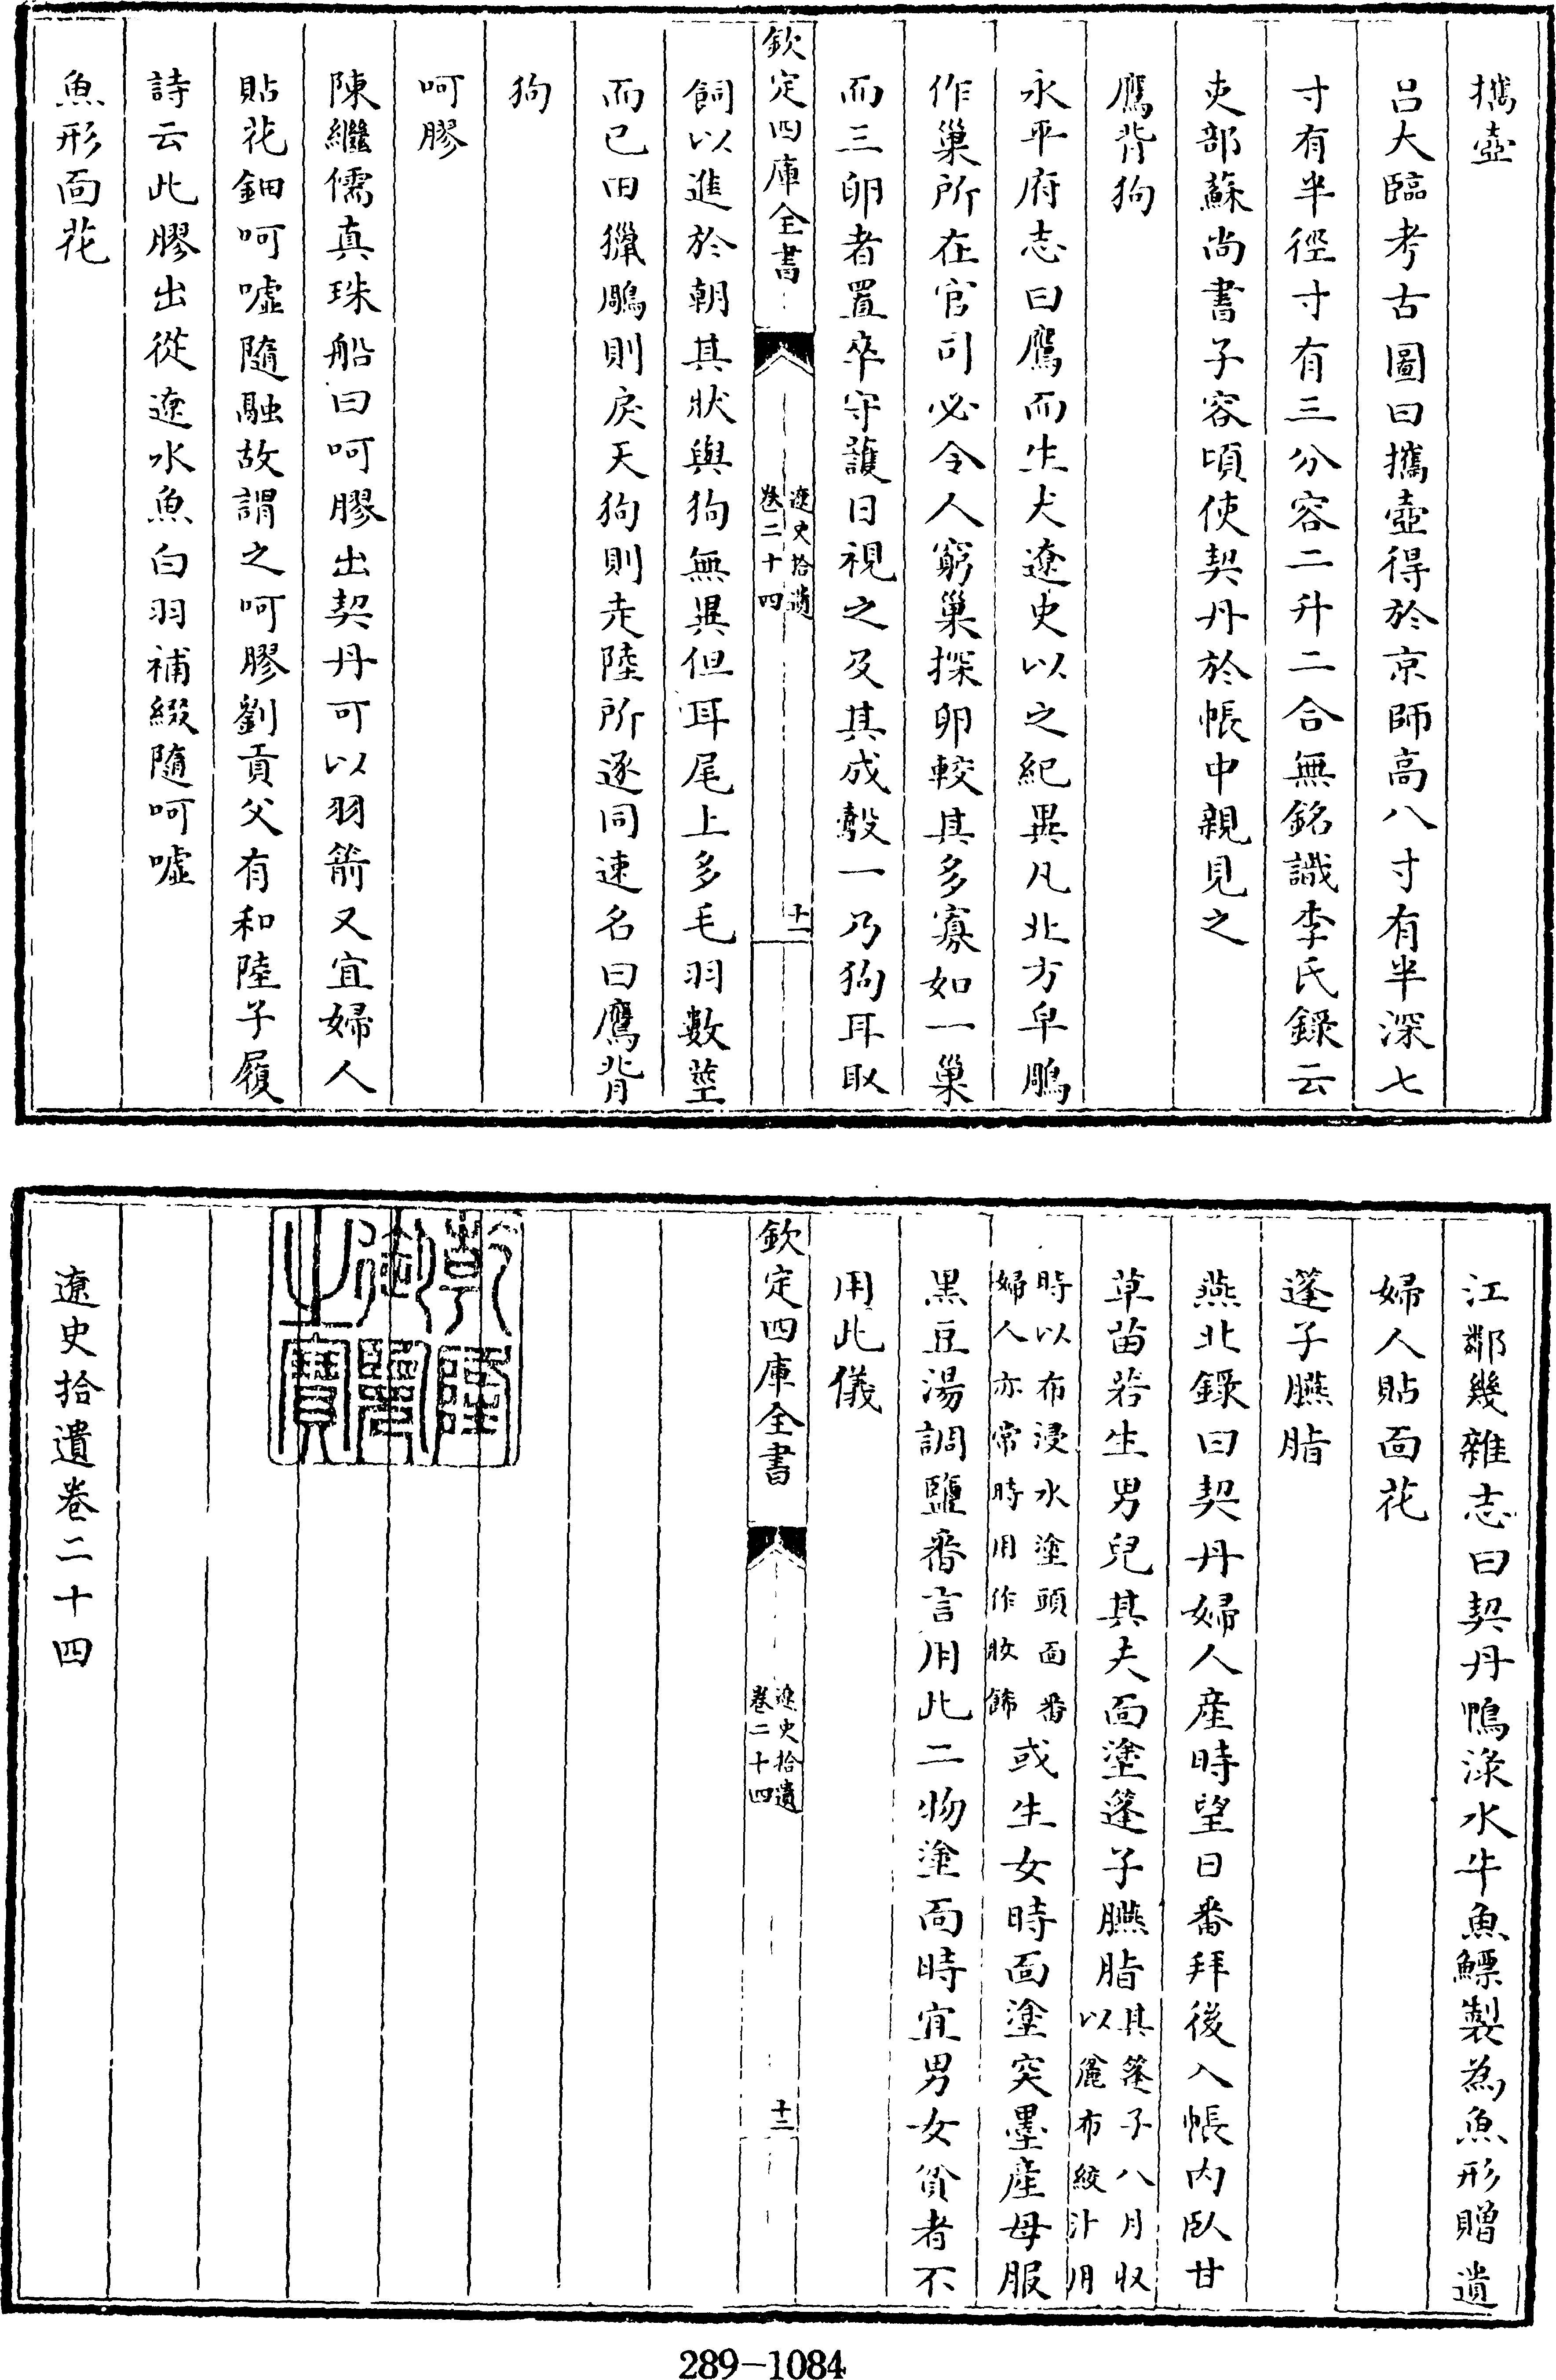 攜壺
呂大臨考古圖曰攜壺得於京師高八寸有半深七
寸有半徑寸有三分容二升二合無銘識李氏錄云
吏部蘇尚書子容頃使契丹於帳中親見之
鷹背狗
永平府志曰鷹而生犬遼史以之紀異凡北方皁鵰
作巢所在官司必令人窮巢探卵較其多寡如一巢
而三卵者置卒守護日視之及其成鷇一乃狗耳取
欽定四庫全書
遼史拾遺
卷二十四
十二
飼以進於朝其狀與狗無異但耳尾上多毛羽數莖
而已田獵鵰則戾天狗則走陸所逐同速名曰鷹背
狗
呵膠
陳繼儒真珠船曰呵膠出契丹可以羽箭又宜婦人
貼花鈿呵噓隨融故謂之呵膠劉貢父有和陸子履
詩云此膠出從遼水魚白羽補綴隨呵噓
魚形面花
江鄰幾雜志曰契丹鴨淥水牛魚鰾製為魚形贈遺
婦人貼面花
蓬子臙脂
燕北錄曰契丹婦人產時望日番拜後入帳內臥甘
草苗若生男兒其夫面塗蓬子臙脂其蓬子八月収
以麄布絞汁用
時以布浸水塗頭面番
婦人亦常時用作妝飾或生女時面塗突墨產母服
黑豆湯調鹽番言用此二物塗面時宜男女貧者不
用此儀
欽定四庫全書
遼史拾遺
卷二十四
十三
乾隆
御覽
之寶
遼史拾遺卷二十四
289-1084